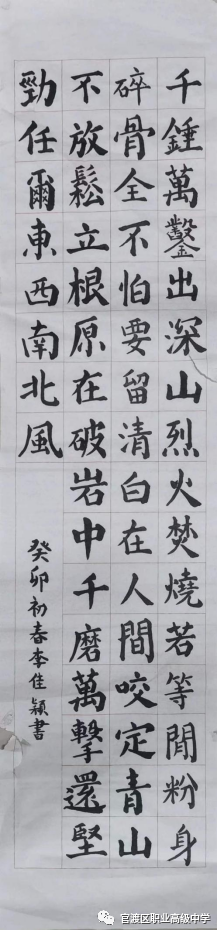 千錘萬鑿出深山烈火焚燒若等閒粉身
碎骨全不怕要留清白在人間咬定青山
不放鬆立根原在破岩中千磨萬擊還堅
勁任爾東西南北風
癸卯初春李佳穎書
官渡区职业高级中学